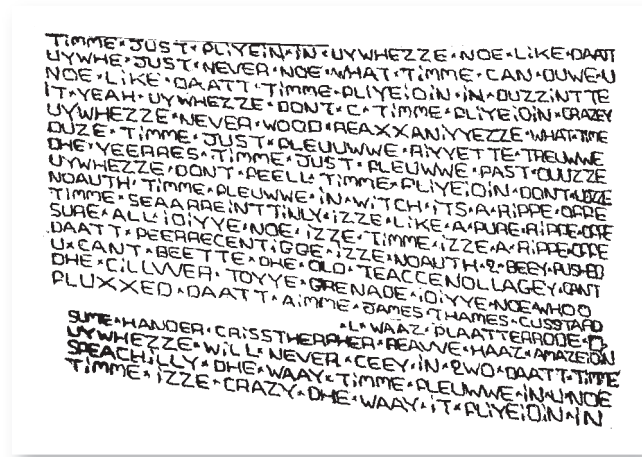 TIMME×JUST×PLIYEIN×IN×UYWHEZZE×NOE×LIKE×DAATT
UYWHE×JUST×NEVER×NOE×WHAT×TIMME×CAN×DUWE×U
NOE×LIKE×DAATT×TIMME×PLIYEIOIN×IN×DUZZINTTE
IT×YEAH×UYWHEZZE×DONT×C×TIMME×PLIYEIOIN×CRAZY
UYWHEZZE×NEVER×WOOD×REAXXANIYYEZZE×WHAT×TIME
DUZE×TIMME×JUST×PLEUUWWE×RIYYETTE×TREUWWE
DHE×YEERRES×TIMME×JUST×PLEUWWE×PAST×DUUZZE
UYWHEZZE×DONT×PEELL×TIMME×PLIYEIOIN×DONT×UZZE
NOAUTH×TIMME×PLEUWWE×IN×WITCH×ITS×A×RIPPE×OFRE
TIMME×SEAARREINTTINLY×IZZE×LIKE×A×PURE×RIPPE×OFFE
SURE×ALL×IOIYYE×NOE×IZZE×TIMME×IZZE×A×RIPPE×OFFE
DAATT×PEERRECENTIGGE×IZZE×NOAUTH×2×BEEY×PUSHED
U×CANT×BEETTE×DHE×OLD×TEACCENOLLAGEY×CANT
DHE×CILLVVER×TOYYE×GRENADE×IOIYYE×NOE×WHOO
PLUXXED×DAATT×AIMME×JAMES×THAMES×CUSSTARD
×L×WAAZ×PLAATTERRODE×
SUME×HANDER×CRISSTHERPHER×REAVVE×HAAZ×AMAZEION
UYWHEZZE×WILL×NEVER×CEEY×IN×2WO×DAATT×TIMME
SPEACHILLY×DHE×WAAY×TIMME×PLEUWWE×IN×U×NOE
TIMME×IZZE×CRAZY×DHE×WAAY×IT×PLIYEIOIN×IN